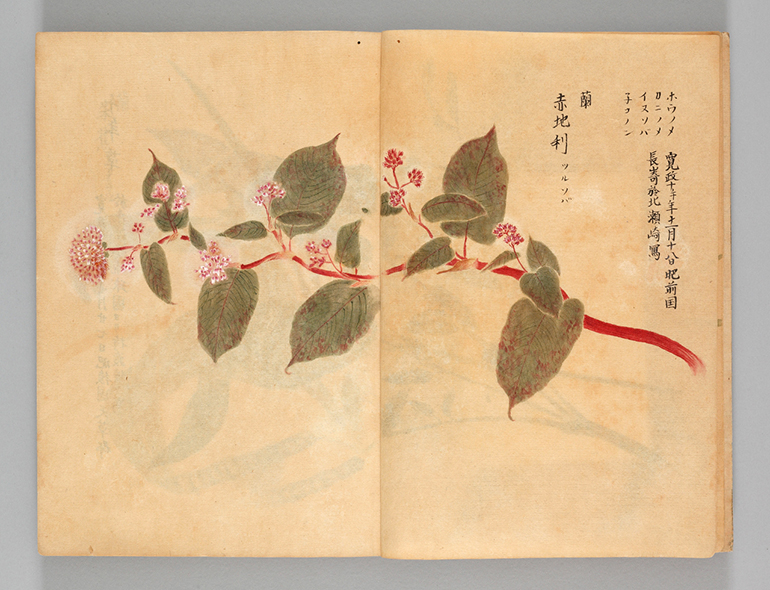 ホウノメ
カニノメ
イスソバ
子コノン
寛政十二年十一月十八日肥前国
長崎於北瀬崎冩
蘭
赤地利 ツルソバ